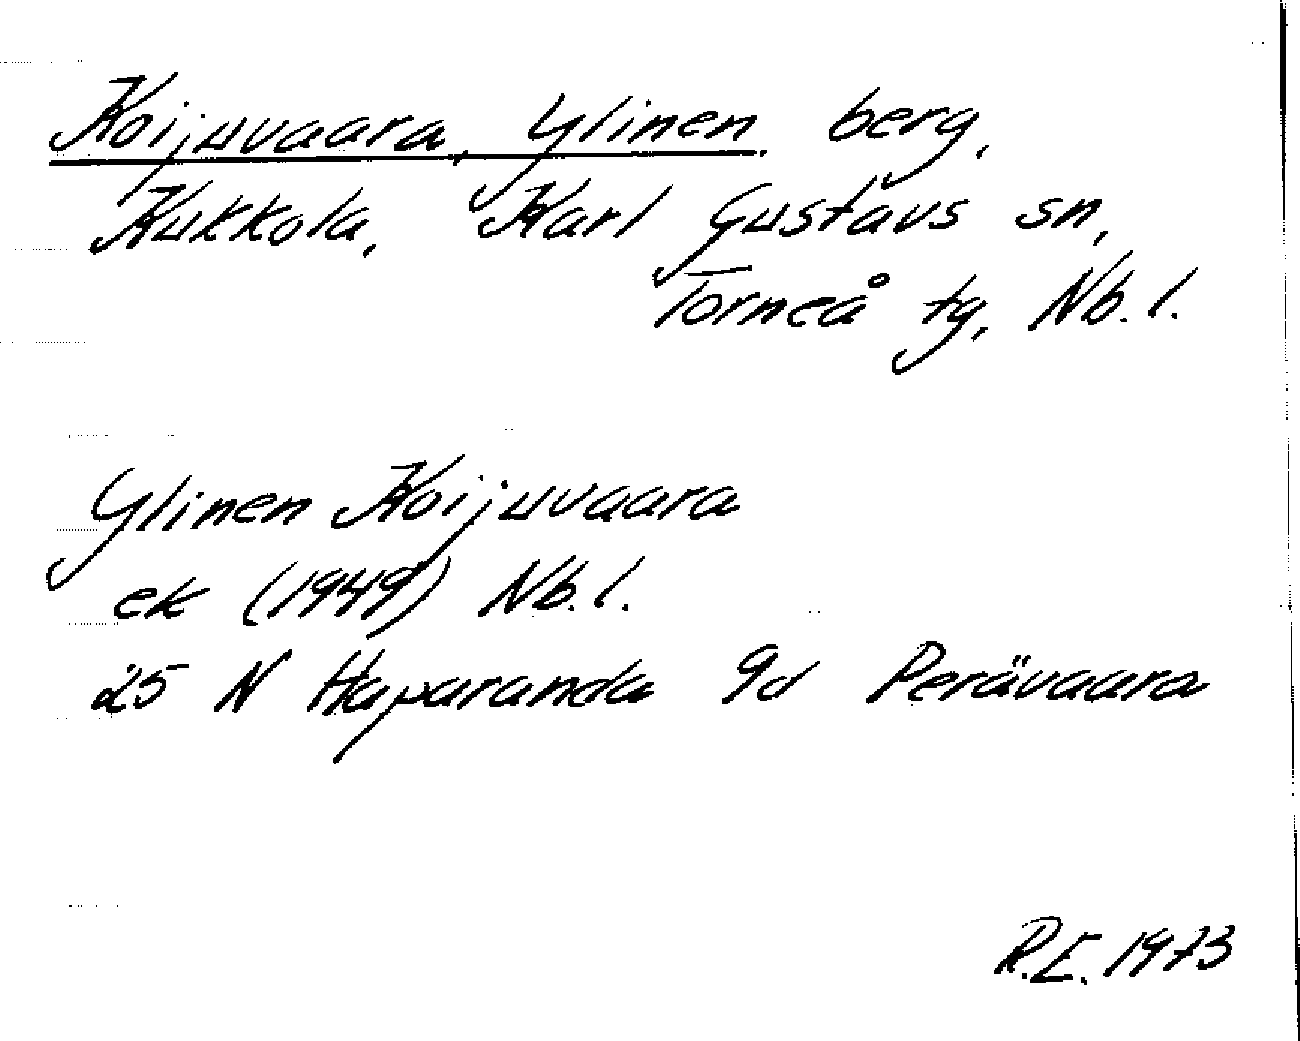 Koijuvaara, Ylinen, berg,
Kukkola, Karl Gustavs sn,
Torneå tg, Nb. l.
Ylinen Koijuvaara
ek (1949) Nb. l.
25 N Haparanda 9d Perävaara
R.E. 1973